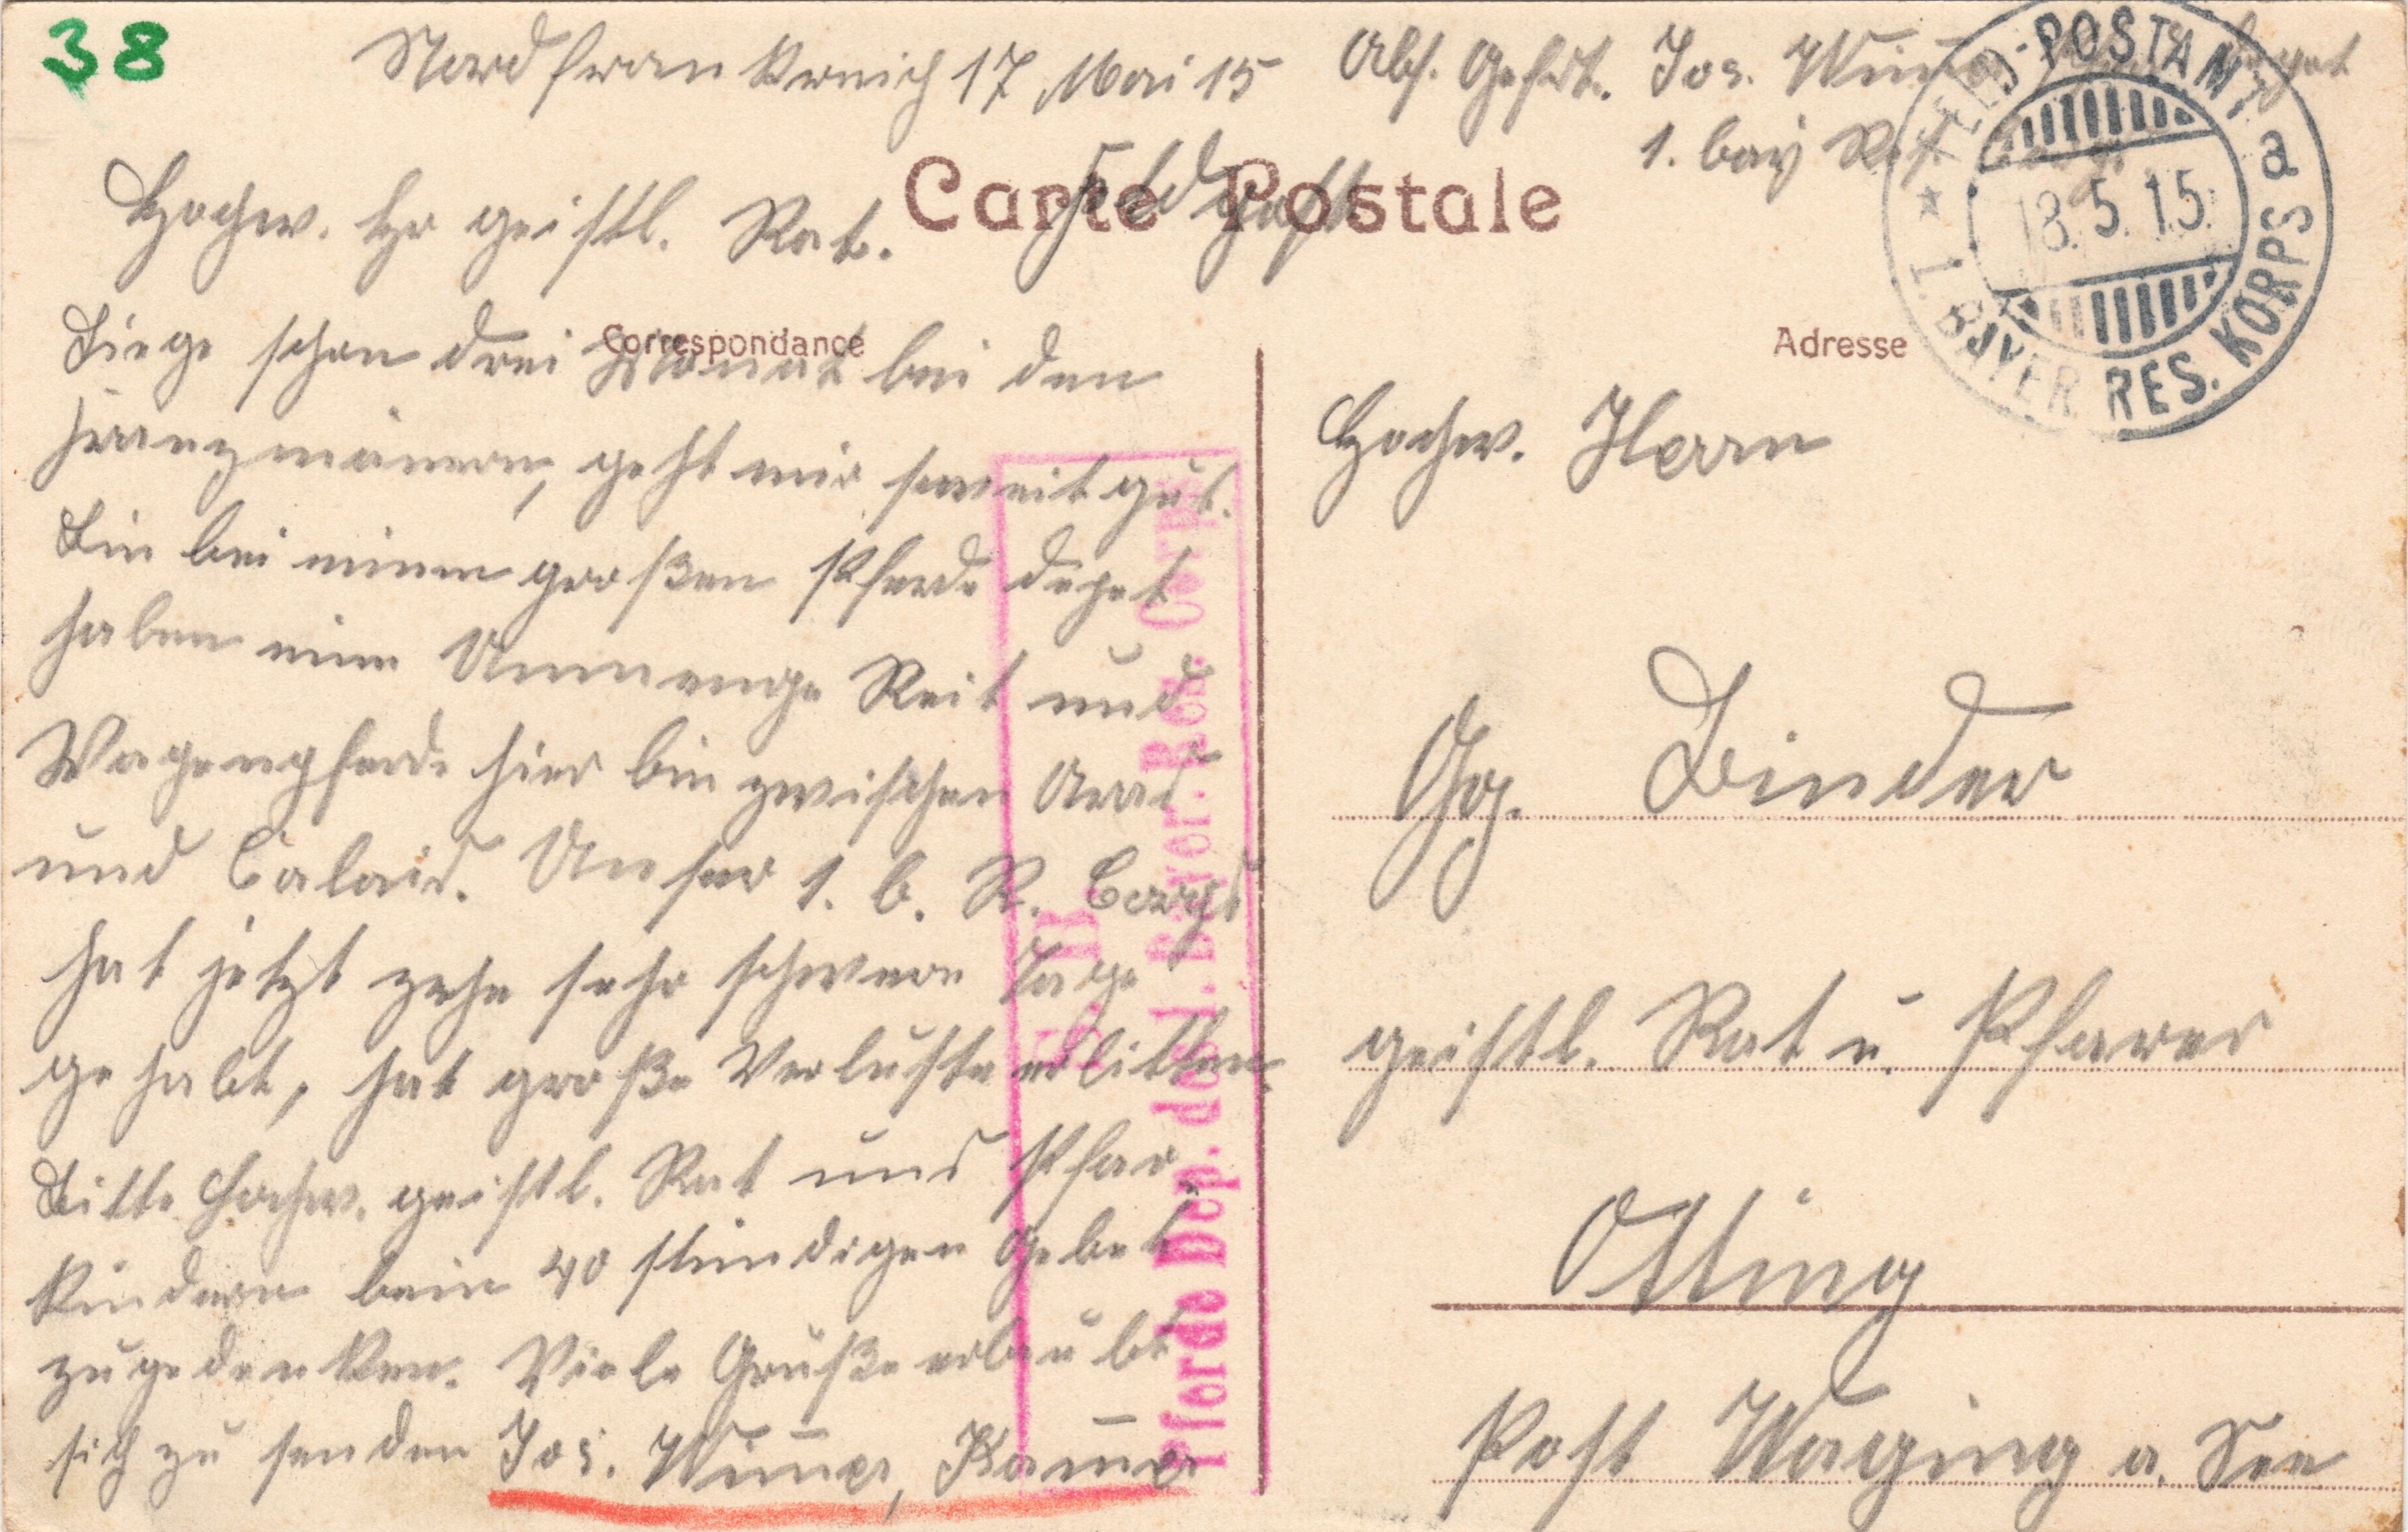 38
Nordfrankreich 17 Mai 15
Abs. Gefrt. Jos. Wim̄er
1. bay Res.
Carte Postale
Feldpost
FELD-POSTAMT a
18.5.15.
* I. BAYER. RES. KORPS
Hochw. Hr geistl. Rat.
Correspondance
Liege schon drei Monat bei den
Franzmännern, geht mir soweit gut.
Bin bei einem großen Pferde depot
haben eine Unmenge Reit und
Wagenpferde hier bin zwischen Arras
und Calais. Unser 1. b. R. Corps
hat jetzt zehn sehr schwere Tage
gehabt, hat große Verluste erlitten.
Bitte Hochw. geistl. Rat und Pfar„
kindern beim 40 stündigen Gebet
zugedenken. Viele Grüße erlaubt
sich zu senden Jos. Wim̄er, Kam̄er
S. B.
Pferde Dep. des I. Bayer. Res. Corps
Adresse
Hochw. Herrn
Gg. Binder
geistl. Rat u. Pfarrer
Otting
Post Waging a. See